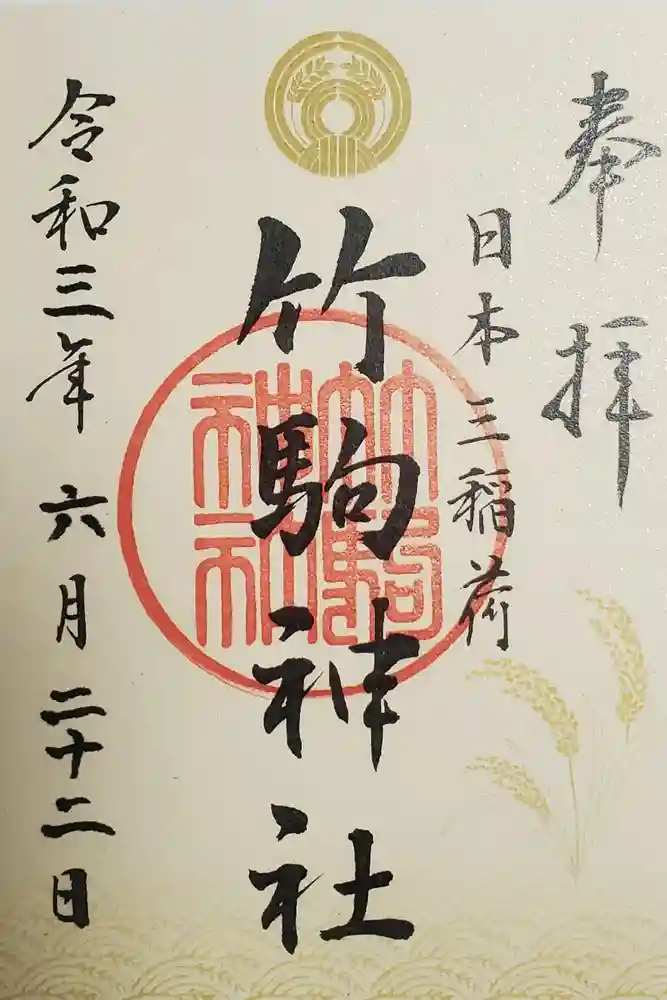 奉拝
日本三稲荷
竹駒神社
竹駒神社
令和三年 六月 二十二日